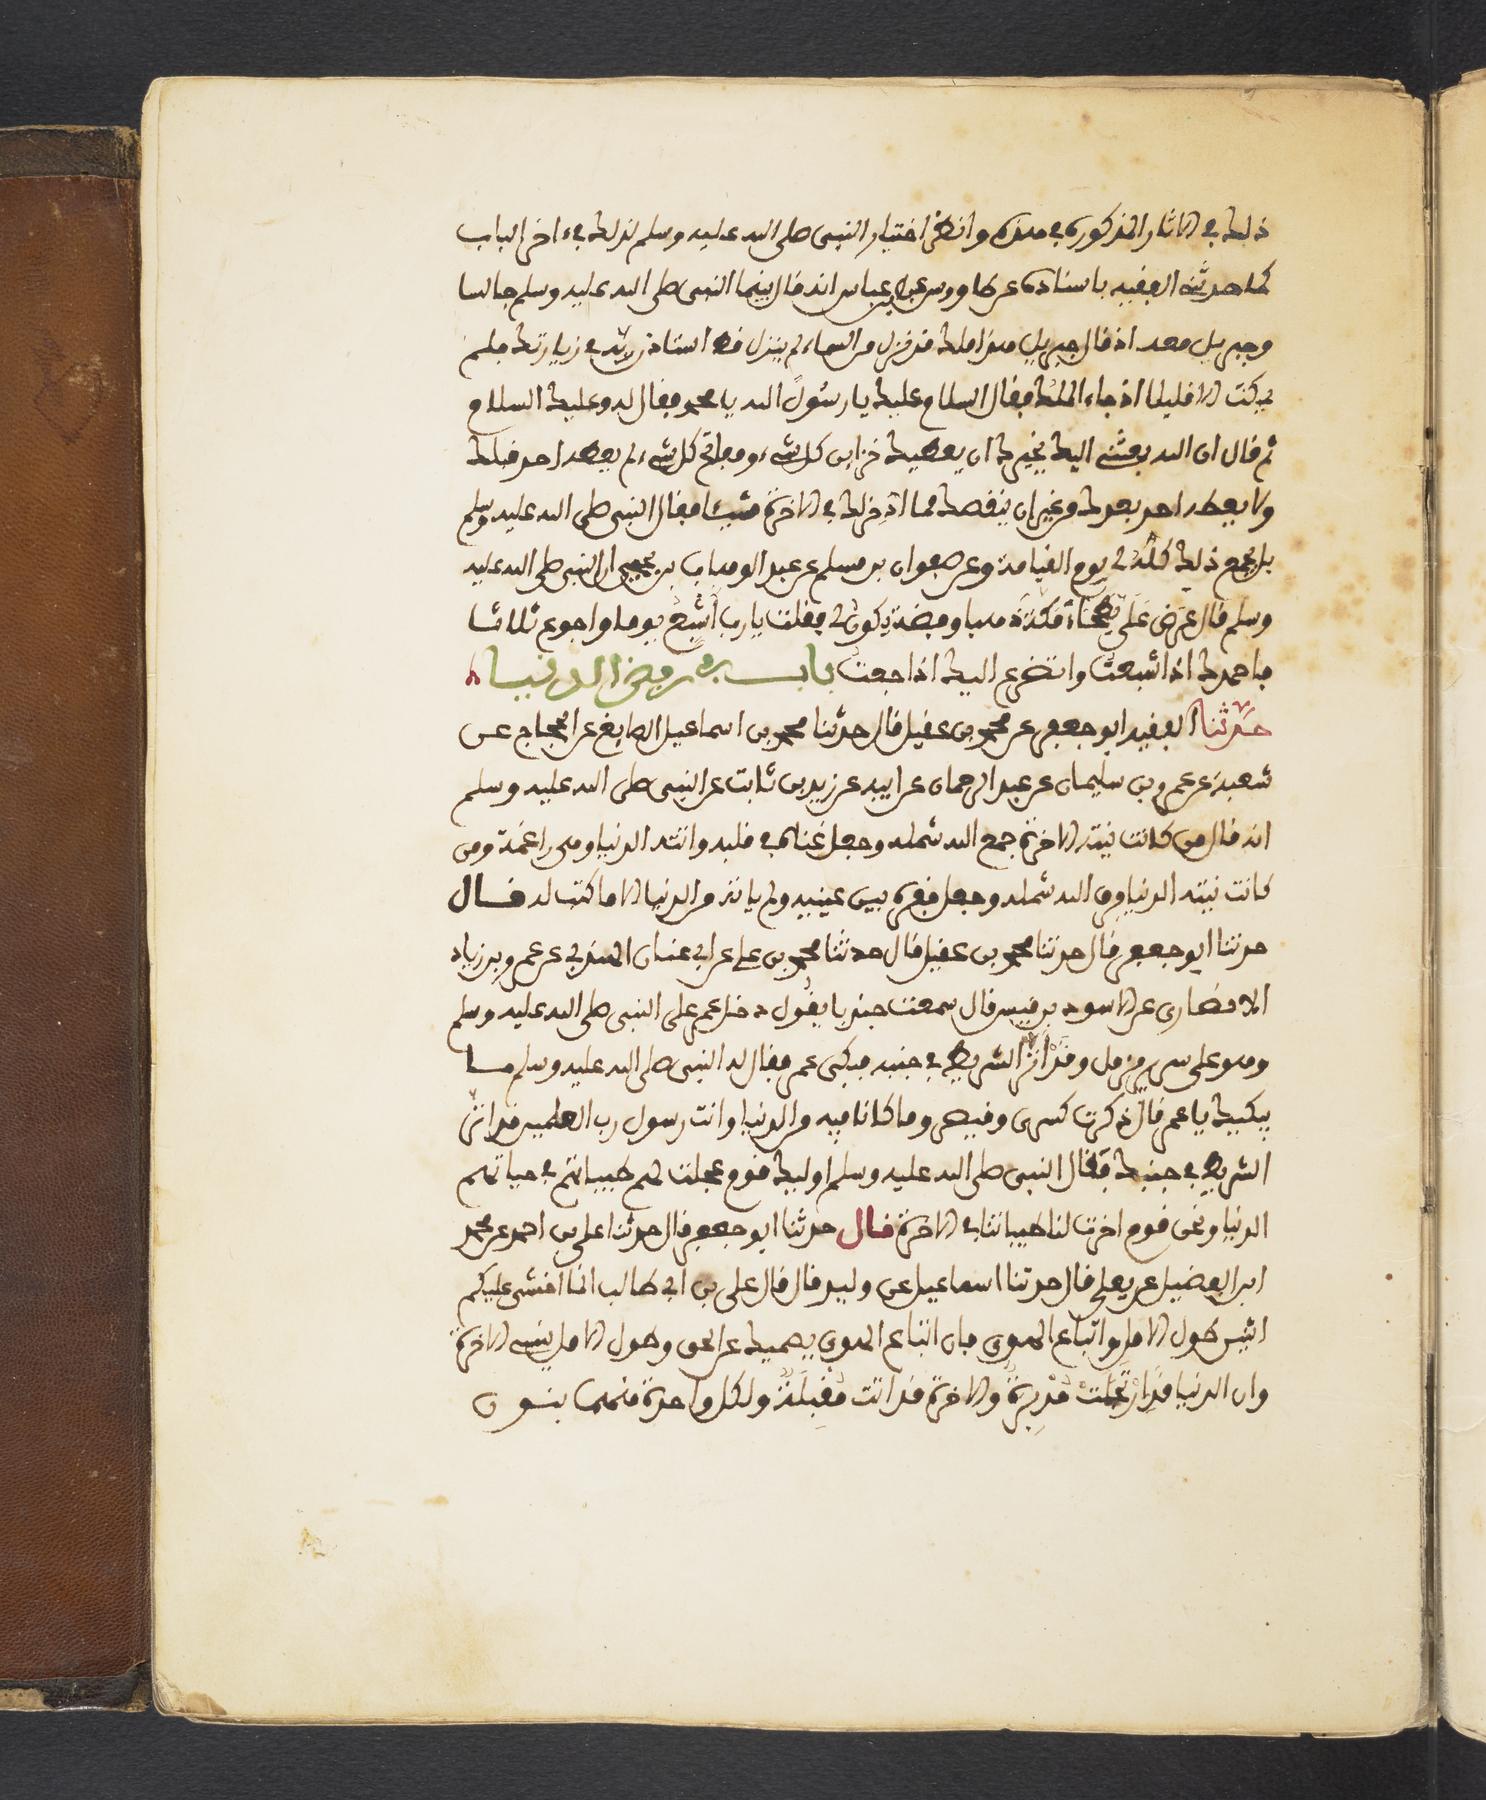 ذلك في الاثار المذكورة في هذه وانظر اختيار النبي صلى الله عليه وسلم لذلك في اخر الباب
كما حدثنا الفقيه باسناده عن طاووس عن ابن عباس انه قال بينما النبي صلى الله عليه وسلم جالسا
وجبريل معه اذ قال جبريل هذا ملك قد نزل من السماء لم ينزل قط استاذن ربه في زيارتك فلم
يمكث الا قليلا اذ جاء الملك فقال السلام عليك يا رسول الله يا محمد فقال له وعليك السلام
ثم قال ان الله بعثني اليك يخيرك ان يعطيك خزاين كل شيء ومفاتح كل شيء لم يعطه احد قبلك
ولا يعطه احد بعدك من غير ان ينقصك مما ادخر لك في الاخرة شيئا فقال النبي صلى الله عليه وسلم
بل يجمع ذلك كله لي يوم القيامة وعن صفوان بن مسلم عن عبد الوهاب بن بجير ان النبي صلى الله عليه
وسلم قال عرض علي بطحاء مكة ذهبا وفضة يكون لي فقلت يا رب اشبع يوما واجوع ثلاثا
فاحمدك اذا شبعت واتضرع اليك اذا جعت باب في رفض الدنيا
حدثنا الفقيه ابو جعفر عن محمد بن عقيل قال حدثنا محمد بن اسماعيل الصايغ عن الحجاج عن
شعبة عن عمرو بن سليمان عن عبد الرحمان عن ابيه عن زيد بن ثابت عن النبي صلى الله عليه وسلم
انه قال من كانت نيته الاخرة جمع الله شمله وجعل غناه في قلبه واتته الدنيا وهي راغمة ومن
كانت نيته الدنيا فرق الله شمله وجعل فقره بين عينيه ولم ياته من الدنيا الا ما كتب له قال
حدثنا ابو جعفر قال حدثنا محمد بن عقيل قال حدثنا محمد بن علي عن ابي عثمان المدني عن عمرو بن زياد
الانصاري عن الاسود بن قيس قال سمعت جندبا يقول دخل عمر على النبي صلى الله عليه وسلم
وهو على سرير مزمل وقد اثر الشريط في جنبه فبكى عمر فقال له النبي صلى الله عليه وسلم ما
يبكيك يا عمر قال ذكرت كسرى وقيصر وما كانا فيه من الدنيا وانت رسول رب العلمين قد اثر
الشريط في جنبك فقال النبي صلى الله عليه وسلم اوليك قوم عجلت لهم طيباتهم في حياتهم
الدنيا ونحن قوم اخرت لنا طيباتنا في الاخرة قال حدثنا ابو جعفر قال حدثنا علي بن احمد عن محمد
ابن الفضيل عن يعلى قال حدثنا اسماعيل عن وليد قال قال علي بن ابي طالب انما اخشى عليكم
اثنين طول الامل واتباع الهوى فان اتباع الهوى يصميك عن الحق وطول الامل ينسي الاخرة
وان الدنيا قد ارتحلت مدبرة والاخرة قد اتت مقبلة ولكل واحدة منهما بنون